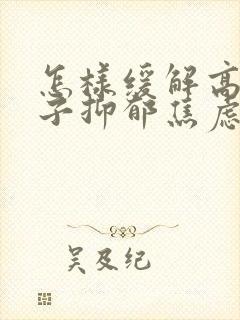 怎样缓解高
子抑郁焦虑
吴及纪